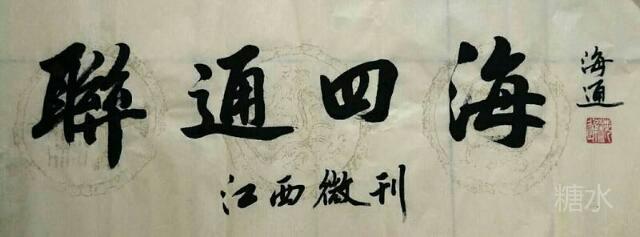 聯通四海
江西微刊
海通
糖水